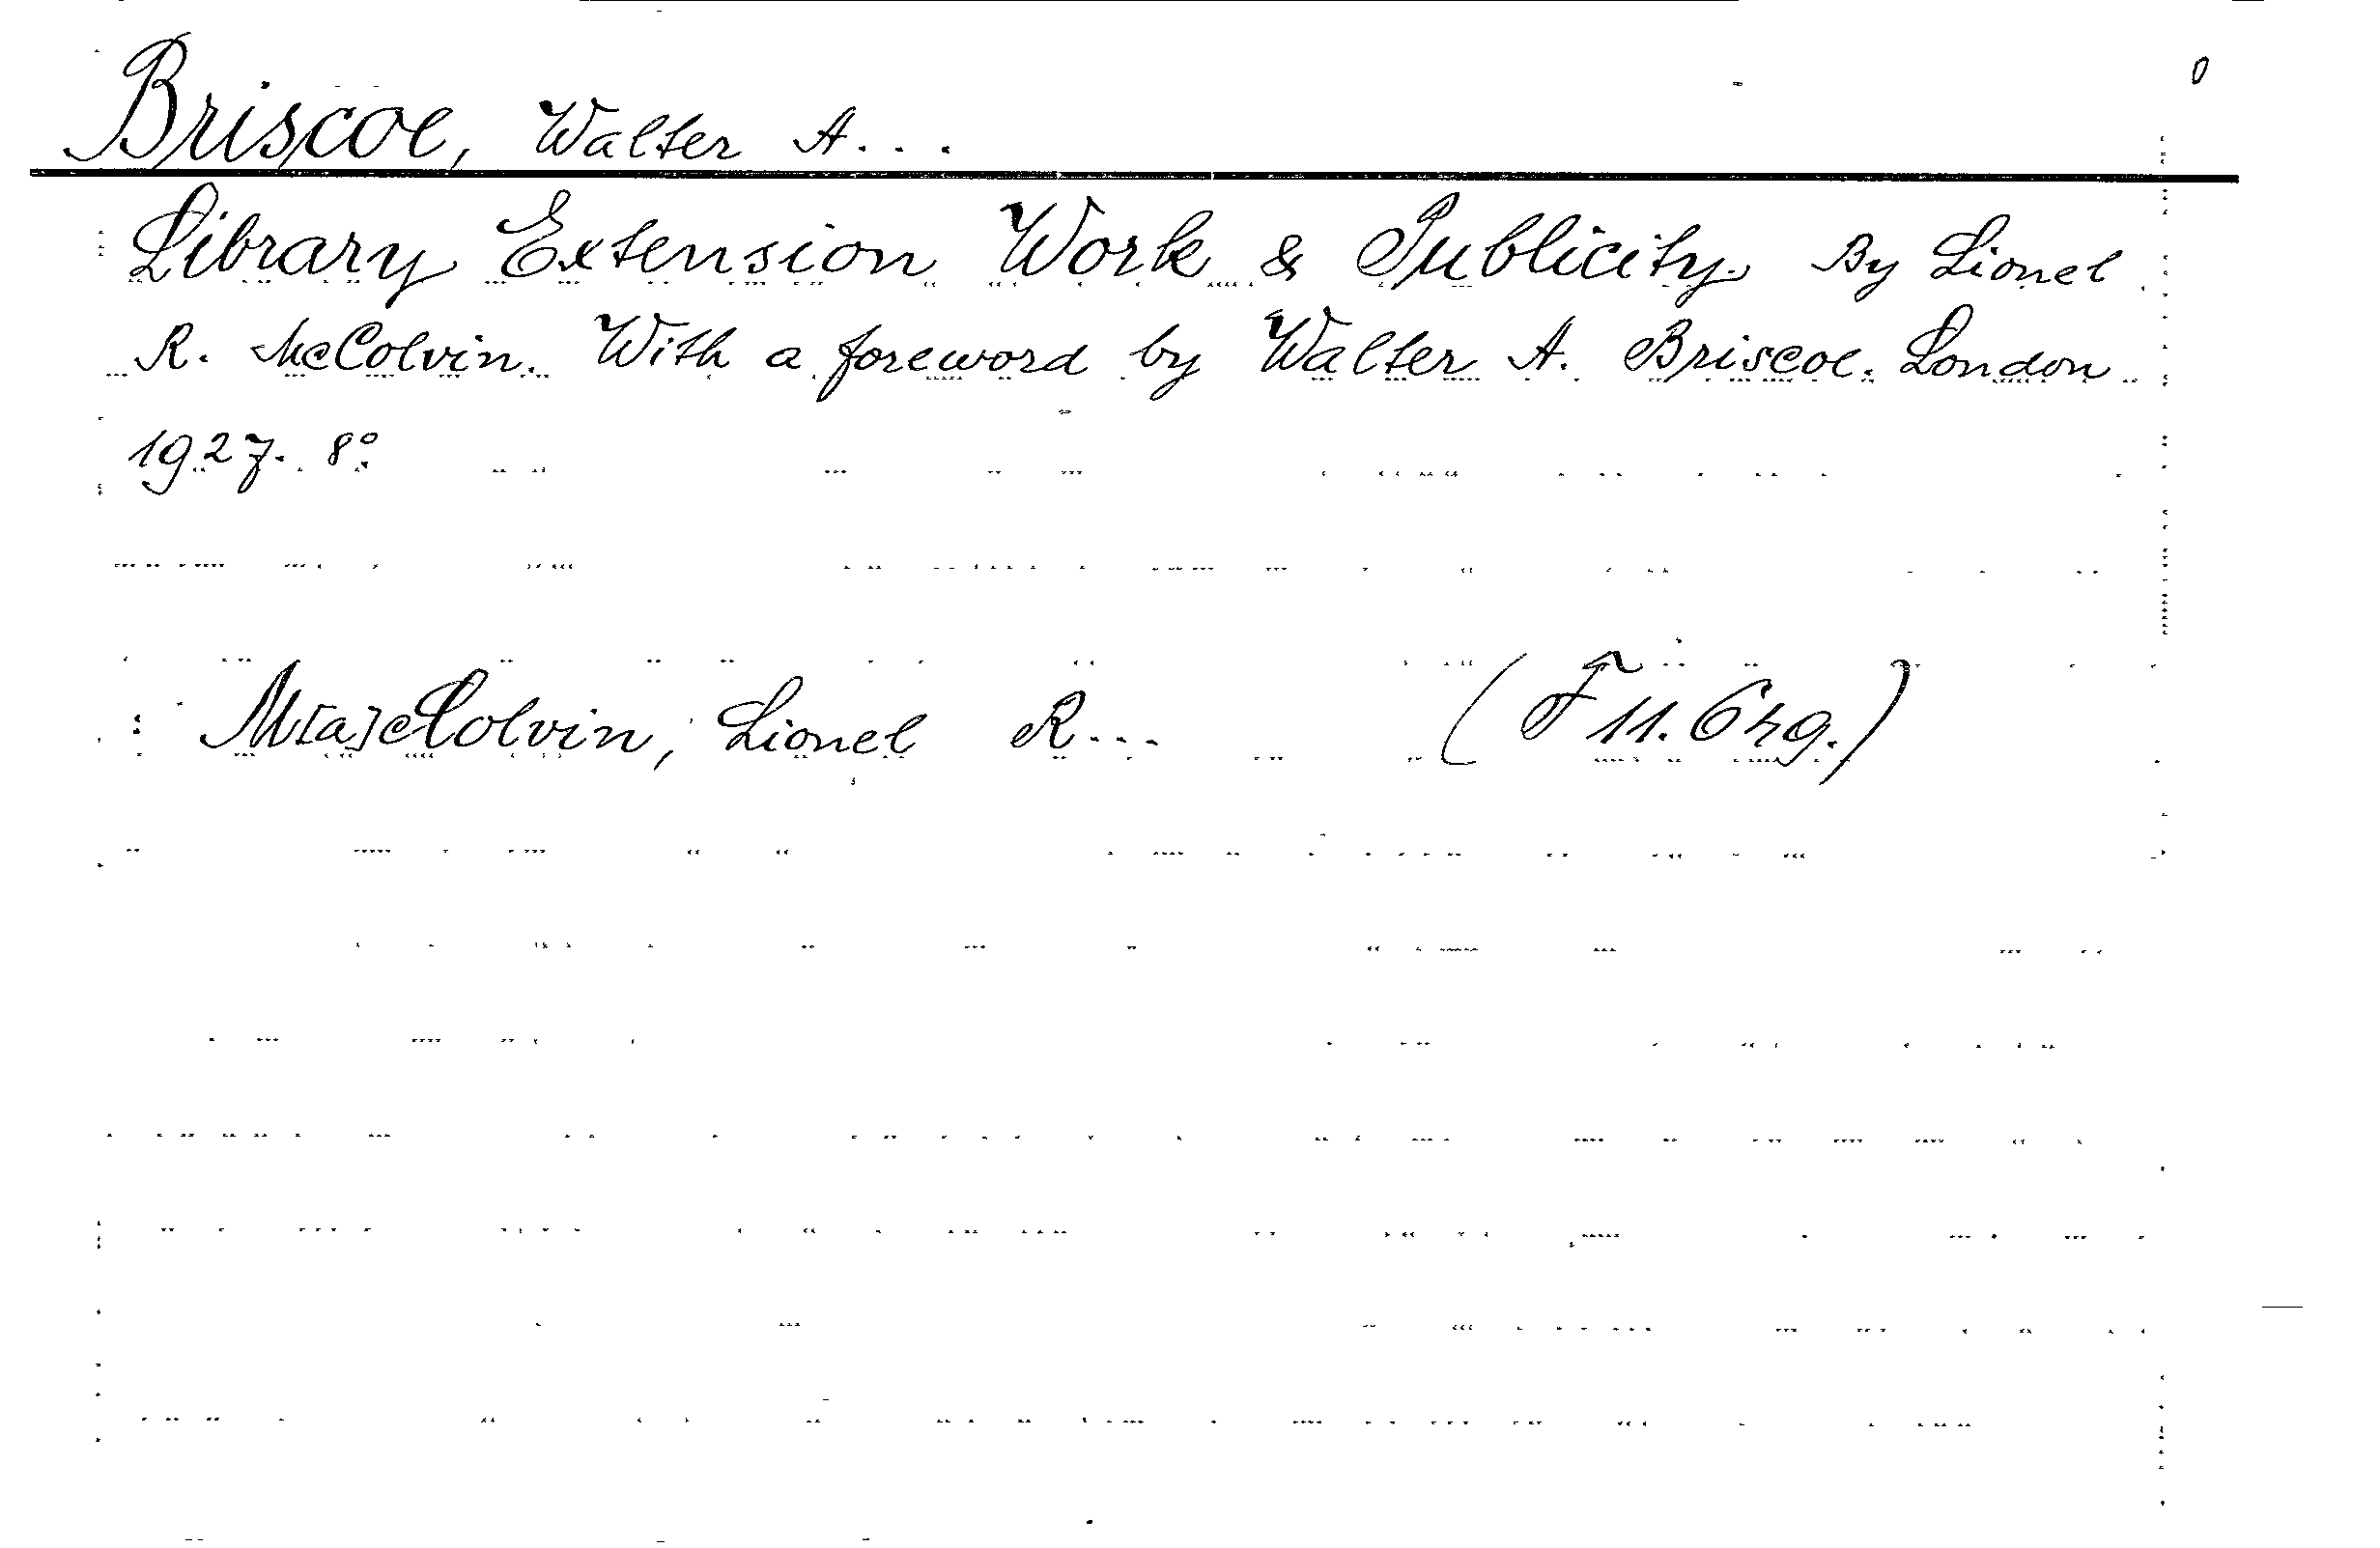 0
Briscoe, Walter A...
Library Extension Work & Publicity. By Lionel
R. McColvin. With a foreword by Walter A. Briscoe. London
1927. 8°.
M[a]cColvin, Lionel R...